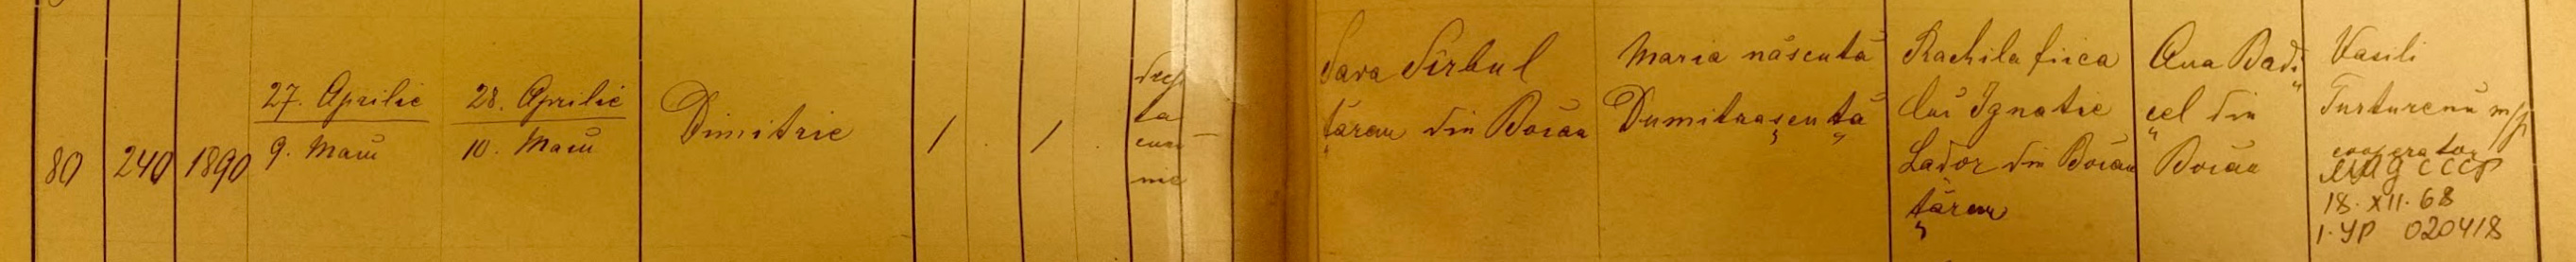 80
240
1890
27. Aprilie
9. Maiu
28. Aprilie
10. Maiu
Dimitrie
/
/
drep
ta
cum
nie
Sava Sîrbul
țăran din Boian
Maria născută
Dumitrașcuță
Rachila fiica
lui Ignatie
Lador din Boian
țăran
Ana Badi
cel din
Boian
Vasili
Turturenu m/p
cooperator
МИД СССР
18. XII. 68
020418